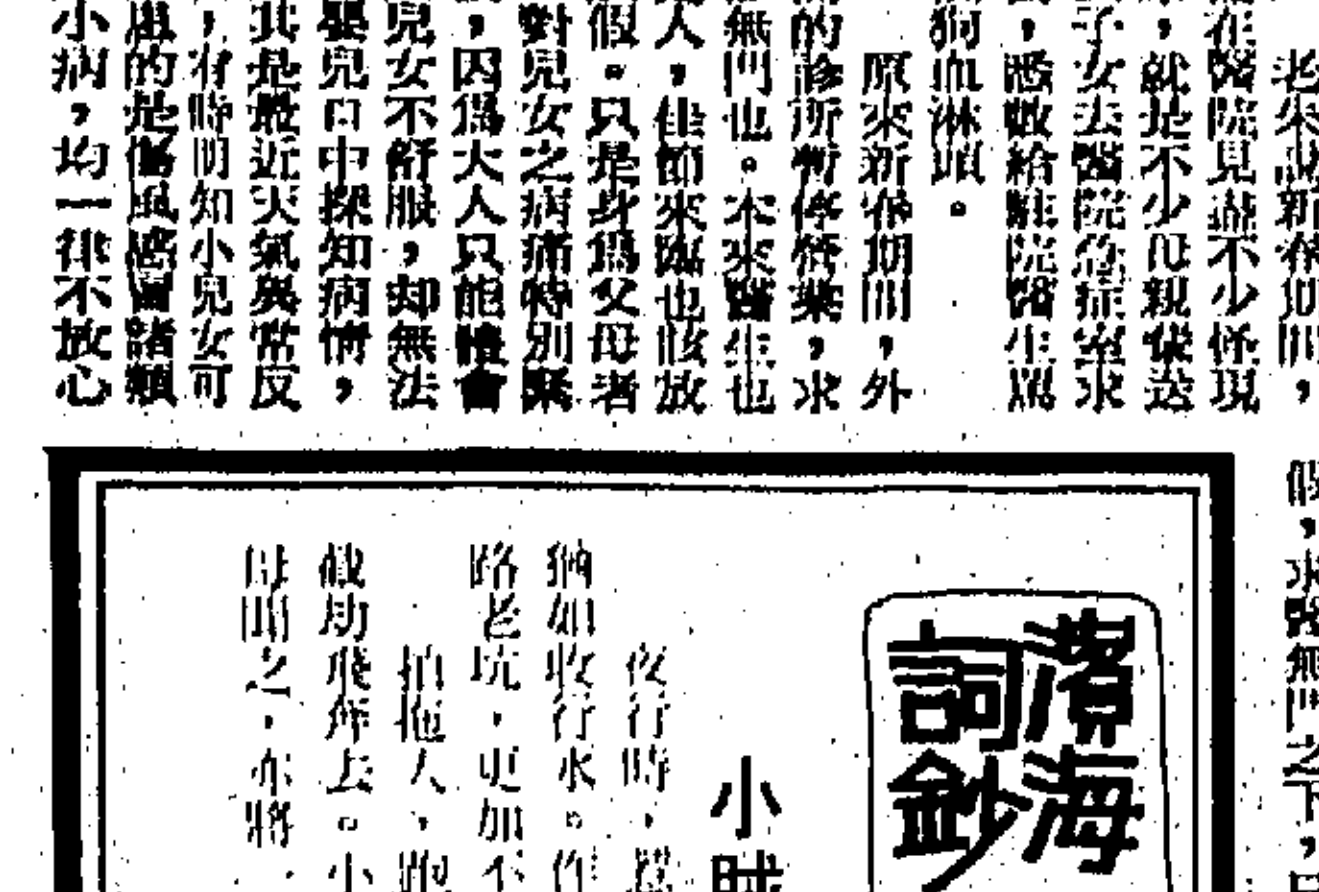 老朱說新春期間，
在醫院見盡不少怪現
，就是不少母親保送
子女去醫院急症室求
，悉數給駐院醫生罵
狗血淋頭。
原來新春期間，外
的診所暫停營業，求
無門也。本來醫生也
人，佳節來臨也該放
假。只是身爲父母者
對兒女之病痛特別緊
，因爲大人只能體會
兒女不舒服，却無法
嬰兒口中探知病情，
其是最近天氣異常反
，有時明知小兒女可
患的是傷風感冒諸類
小病，均一律不放心
假，求醫無門之下，
濱海
詞鈔
小賊
夜行時，惹
猶如收行水。作
路老坑，更加不
拍拖人，跑
截劫飛奔去。小
母睹之，亦將